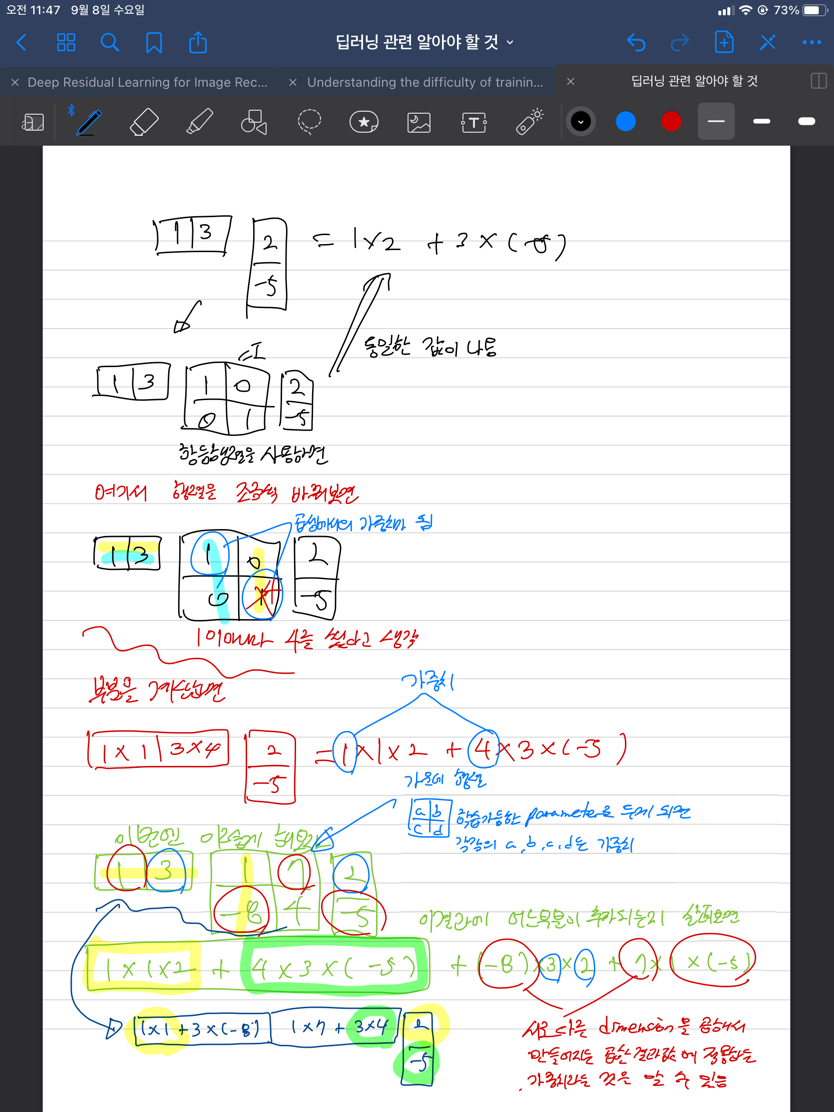 오전 11:47 9월 8일 수요일
73%
딥러닝 관련 알아야 할 것
Deep Residual Learning for Image Rec...
Understanding the difficulty of trainin...
딥러닝 관련 알아야 할 것
1 3
2
-5
= 1×2 + 3×(-5)
동일한 값이 나옴
=I
1 3
1 0
0 1
2
-5
항등행렬을 사용하면
여기서 행렬을 조금씩 바꿔보면
가중치가 됨
1 3
1 0
0 4
2
-5
1이 아니라 4를 썼다고 생각
가중치
1×1 3×4
2
-5
= 1×1×2 + 4×3×(-5)
가운데 행렬
a b
c d
학습가능한 parameter로 두게 되면
각각의 a, b, c, d는 가중치
이번엔 이렇게
1 3
1 7
-8 4
2
-5
이 결과에 어느부분이 추가되는지 살펴보면
1×1×2 + 4×3×(-5) + (-8)×3×2 + 7×1×(-5)
1×1+3×(-8) 1×7+3×4
2
-5
서로 다른 dimension을 곱해서
만들어지는 곱한 결과값에 적용하는
가중치라는 것을 알 수 있음